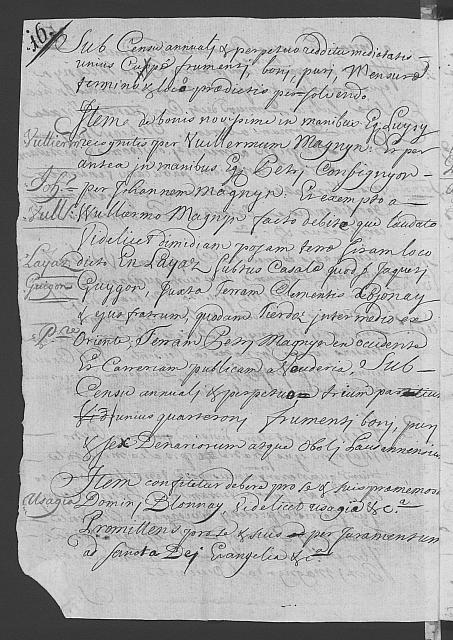 16.
Sub Censu annualj & perpetuo redditu medietatis
unius Cuppe frumentj, bonj, purj, Mensura
termino & loco prædictis persolvendo.
Item de bonis novissime in manibus Eg. Luysy
recognitis per Vuillermum Magnyn: et per
antea in manibus Eg. Petrj
per Johannam Magnyn: Ex exempto a
Vuillermo Magnyn facto debite que laudato
Videlicet dimidiam posam terræ Sitam loco
dicto En Layaz Subtus Casale quod f. Jaquetj
Guygon, Juxta Terram Clementis
& ejus fratrum, quadam Tierdaz intermedio ex
Oriente, Terram Petrj Magnyn ex occidente
Et Carreriam publicam a Vauderia & Sub
Censu annualj & perpetuo trium partium
unius quarteronj frumentj bonj, purj
& sex Denariorum atque Obolj Lausannensium
Item confitetur debere pro se & suis præmemorato
Usagia Dominj Blonnay, Videlicet usagia & C.a
Promittens pro se & suis per Juramentum
ad sancta Dej Evangelia & C.a